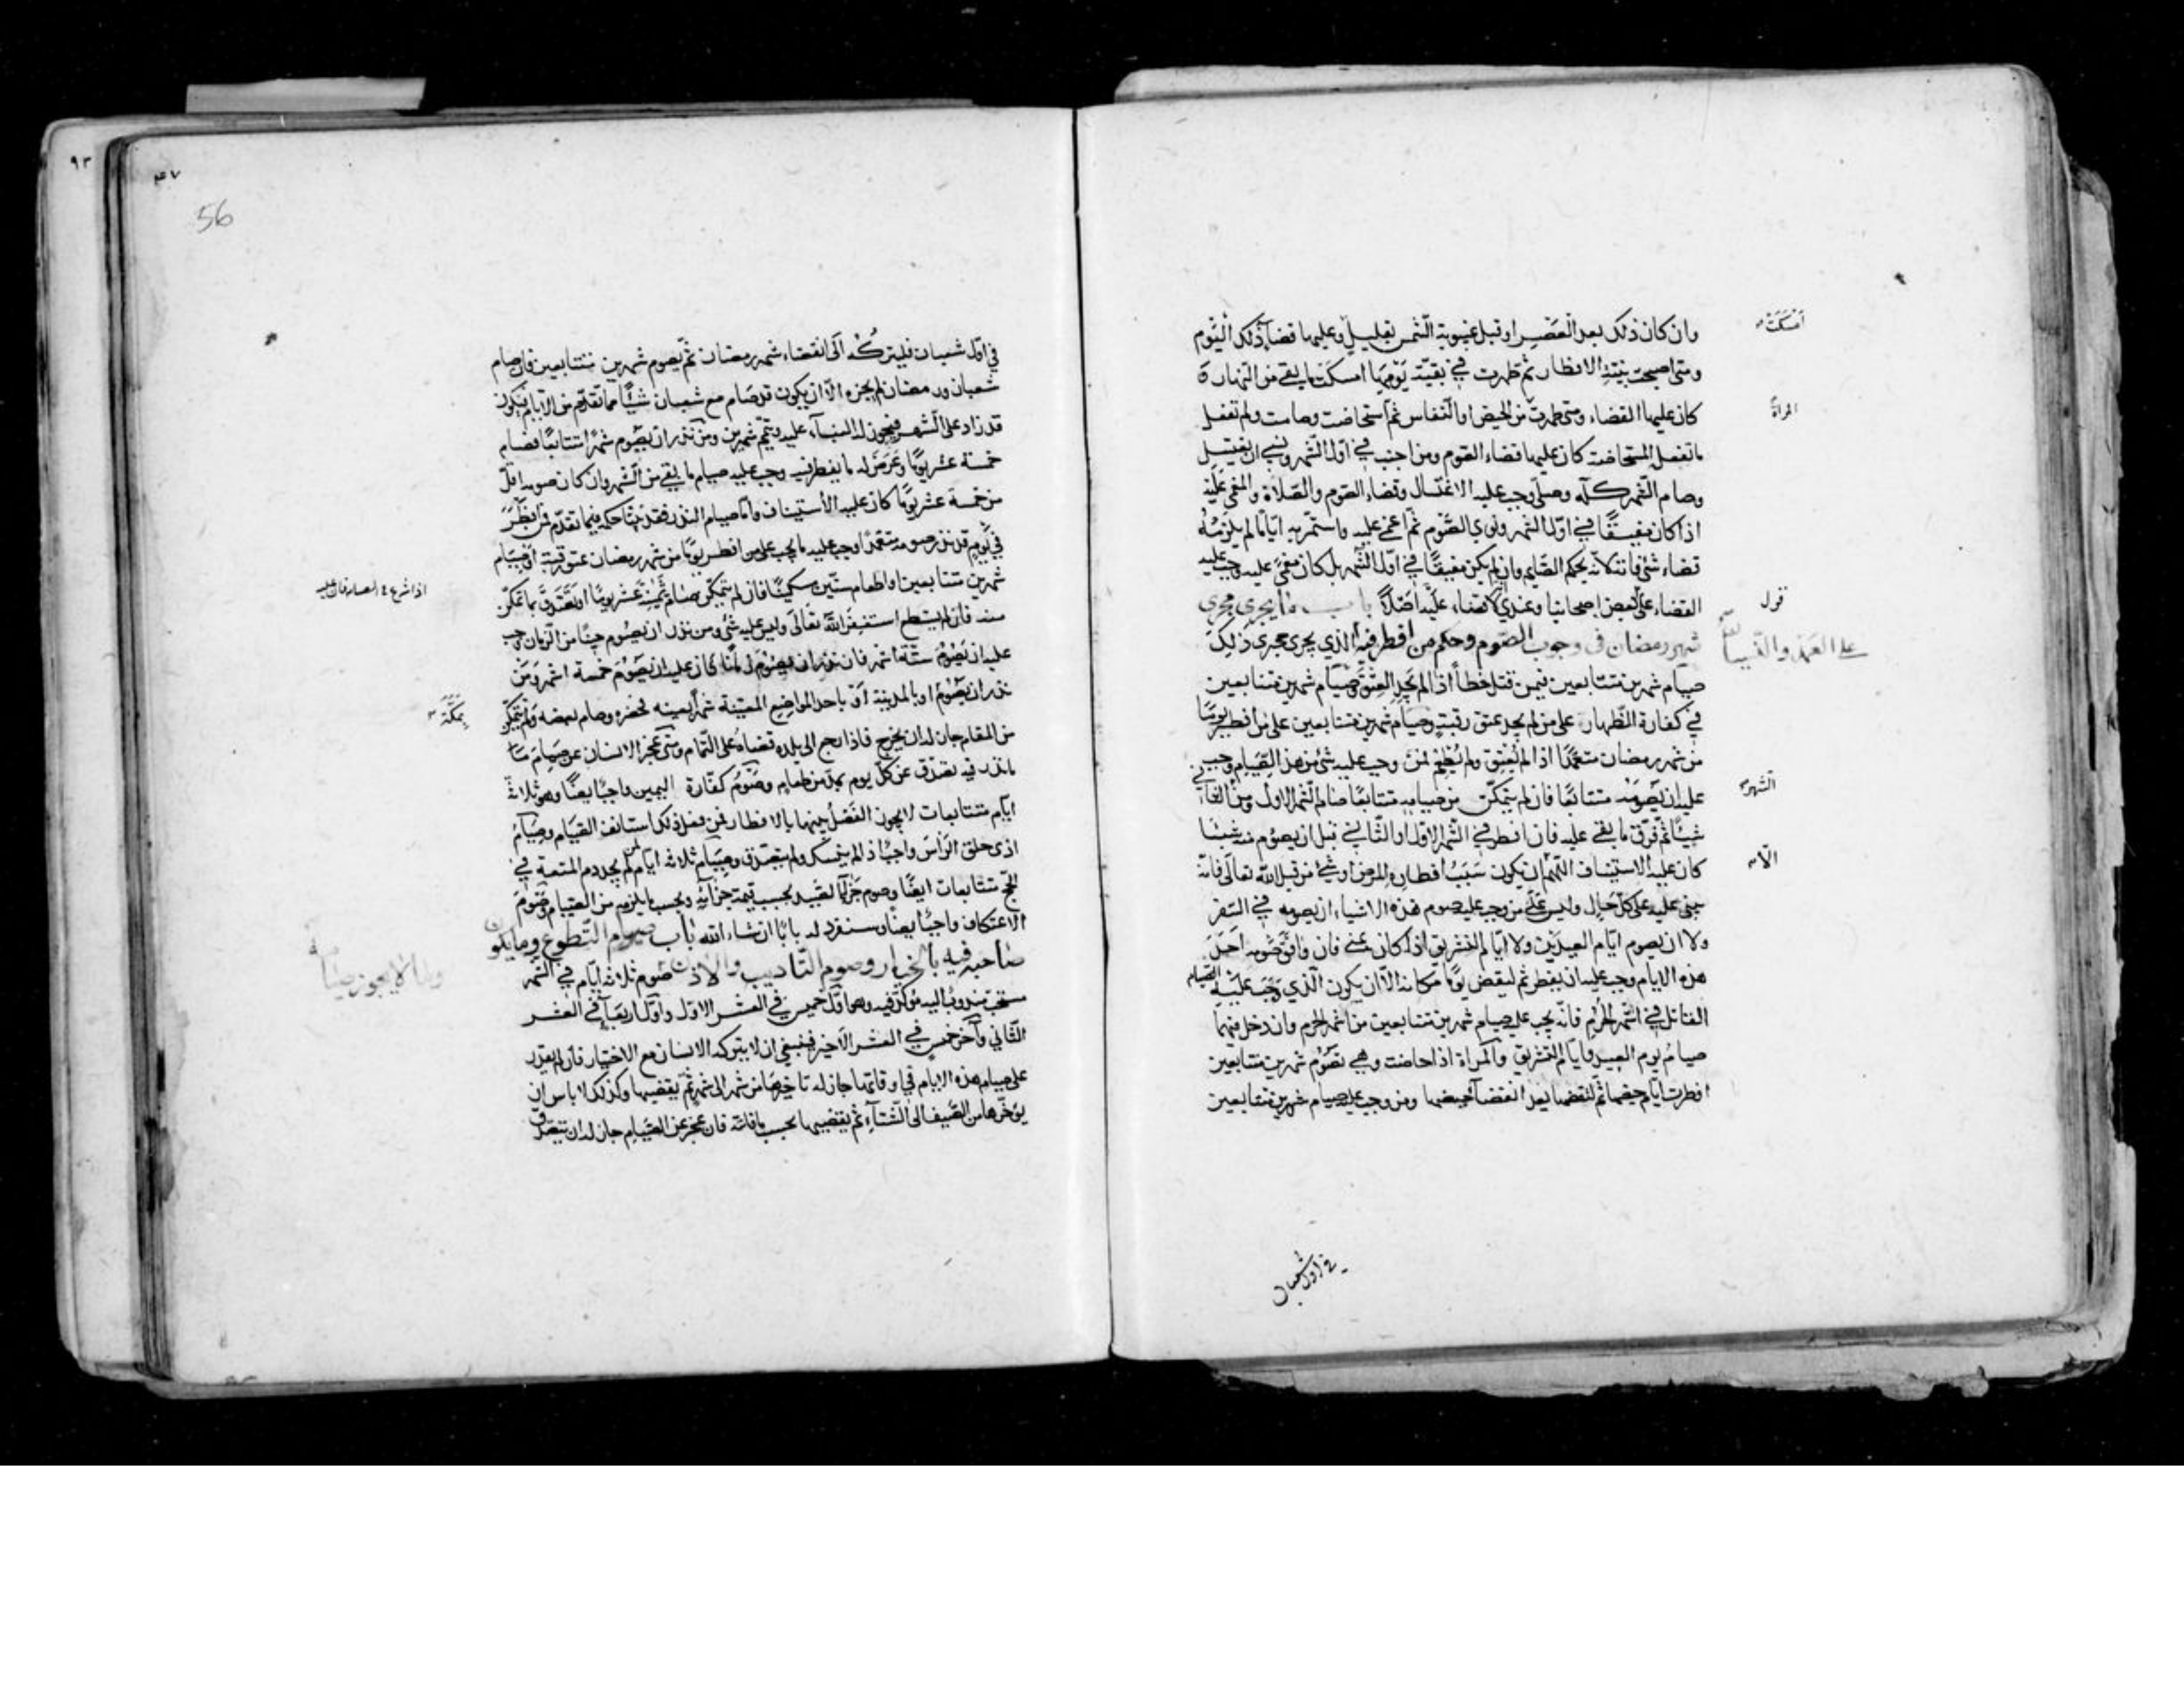 وان كان ذلك بعد العصر او قبل غيبوبة الشمس بقليل وعليها قضاء ذلك اليوم
امسكت
ومتى اصبحت بنية الافطار ثم طهرت في بقية يومها امسكت ما بقي من النهار
كان عليها القضاء ومتى طهرت من الحيض او النفاس ثم استحاضت وصامت ولم تفعل
المراة
ما تفعله المستحاضة كان عليها قضاء الصوم ومن اجنب في اول الشهر ونسي ان يغتسل
وصام الشهر كله وصلى وجب عليه الاغتسال وقضاء الصوم والصلاة والمغمى عليه
اذا كان مفيقا في اول الشهر ونوى الصوم ثم اغمي عليه واستمر به اياما لم يلزمه
قضاء شئ فاته لانه بحكم الصايم وان لم يكن مفيقا في اول الشهر بل كان مغمى عليه وجب عليه
القضاء على بعض اصحابنا وعندي لا قضاء عليه اصلا باب ما يجري مجرى
قول
شهر رمضان في وجوب الصوم وحكم من افطر فيه الذي يجري مجرى ذلك
صيام شهرين متتابعين فيمن قتل خطأ اذا لم يجد العتق وصيام شهرين متتابعين
في كفارة الظهار على من لم يجد عتق رقبة وصيام شهرين متتابعين على من افطر يوما
من شهر رمضان متعمدا اذا لم يعتق ولم يطعم فمن وجب عليه شئ من هذا الصيام وجب
عليه ان يصومه متتابعا فان لم يتمكن من صيامه متتابعا صام الشهر الاول ومن الثاني
الشهر
شيئا ثم فرق ما بقي عليه فان افطر في الشهر الاول او الثاني قبل ان يصوم منه شيئا
كان عليه الاستيناف اللهم ان يكون سبب افطاره المرض او شئ من قبل الله تعالى فانه
الا
يبني عليه على كل حال وليس على من وجب عليه صوم هذه الاشياء ان يصومه في السفر
ولا ان يصوم ايام العيدين ولا ايام التشريق اذا كان بمنى فان وافق صومه احد
هذه الايام وجب عليه ان يفطر ثم ليقض يوما مكانه الا ان يكون الذي وجب عليه الصيام
القاتل في اشهر الحرم فانه يجب عليه صيام شهرين متتابعين من اشهر الحرم وان دخل فيهما
صيام يوم العيد وايام التشريق والمراة اذا حاضت وهي تصوم شهرين متتابعين
افطرت ايام حيضها ثم لتقضها بعد انقضاء حيضها ومن وجب عليه صيام شهرين متتابعين
في اول شعبان
٩٣
56
في اول شعبان فليتركه الى انقضاء شهر رمضان ثم يصوم شهرين متتابعين فان صام
شعبان ورمضان لم يجزه الا ان يكون قد صام مع شعبان شيئا مما تقدم من الايام فيكون
قد زاد على الشهر فيجوز له البناء عليه ويتم شهرين ومن نذر ان يصوم شهرا متتابعا فصام
خمسة عشر يوما وعرض له ما يفطر فيه وجب عليه صيام ما بقي من الشهر وان كان صومه اقل
من خمسة عشر يوما كان عليه الاستيناف واما صيام النذر فقد بينا حكمه فيما تقدم فمن افطر
في يوم قد نذر صومه متعمدا وجب عليه ما يجب على من افطر يوما من شهر رمضان عتق رقبة او صيام
شهرين متتابعين او اطعام ستين مسكينا فان لم يتمكن صام ثمانية عشر يوما او تصدق بما تمكن
منه فان لم يستطع استغفر الله تعالى وليس عليه شئ ومن نذر ان يصوم حينا من الزمان وجب
عليه ان يصوم ستة اشهر فان نذر ان يصوم زمانا كان عليه ان يصوم خمسة اشهر ومن
نذر ان يصوم او بالمدينة او باحد المواضع المعينة شهرا بعينه فحضره وصام بعضه ولم يتمكن
بمكة
من المقام جاز له ان يخرج فاذا رجع الى بلده قضاه على التمام ومتى عجز الانسان عن صيام ما
ما نذر فيه تصدق عن كل يوم بمد من طعام وصوم كفارة اليمين واجب ايضا وهو ثلاثة
ايام متتابعات لا يجوز الفصل بينها بالافطار فمن فعل ذلك استانف الصيام وصيام
اذى حلق الراس واجب اذا لم ينسك ولم يتصدق وصيام ثلاثة ايام لمن لم يجد دم المتعة في
الحج متتابعات ايضا وصوم جزاء الصيد بحسب قيمة جزائه وبحسب ما يلزمه من الصيام وصوم
الاعتكاف واجب ايضا وسنفرد له بابا ان شاء الله باب صيام التطوع وما يكون
صاحبه فيه بالخيار وصوم التاديب والاذن صوم ثلاثة ايام في الشهر
وما لا يجوز صيامه
مستحب مندوب اليه موكد فيه وهو اول خميس في العشر الاول واول اربعاء في العشر
الثاني واخر خميس في العشر الاخير فينبغي ان لا يتركه الانسان مع الاختيار فان لم يقدر
على صيام هذه الايام في اوقاتها جاز له تاخيرها من شهر الى شهر ثم يقضيها وكذلك لا باس ان
يؤخرها من الصيف الى الشتاء ثم يقضيها بحسب ما فاته فان عجز عن الصيام جاز له ان يتصدق